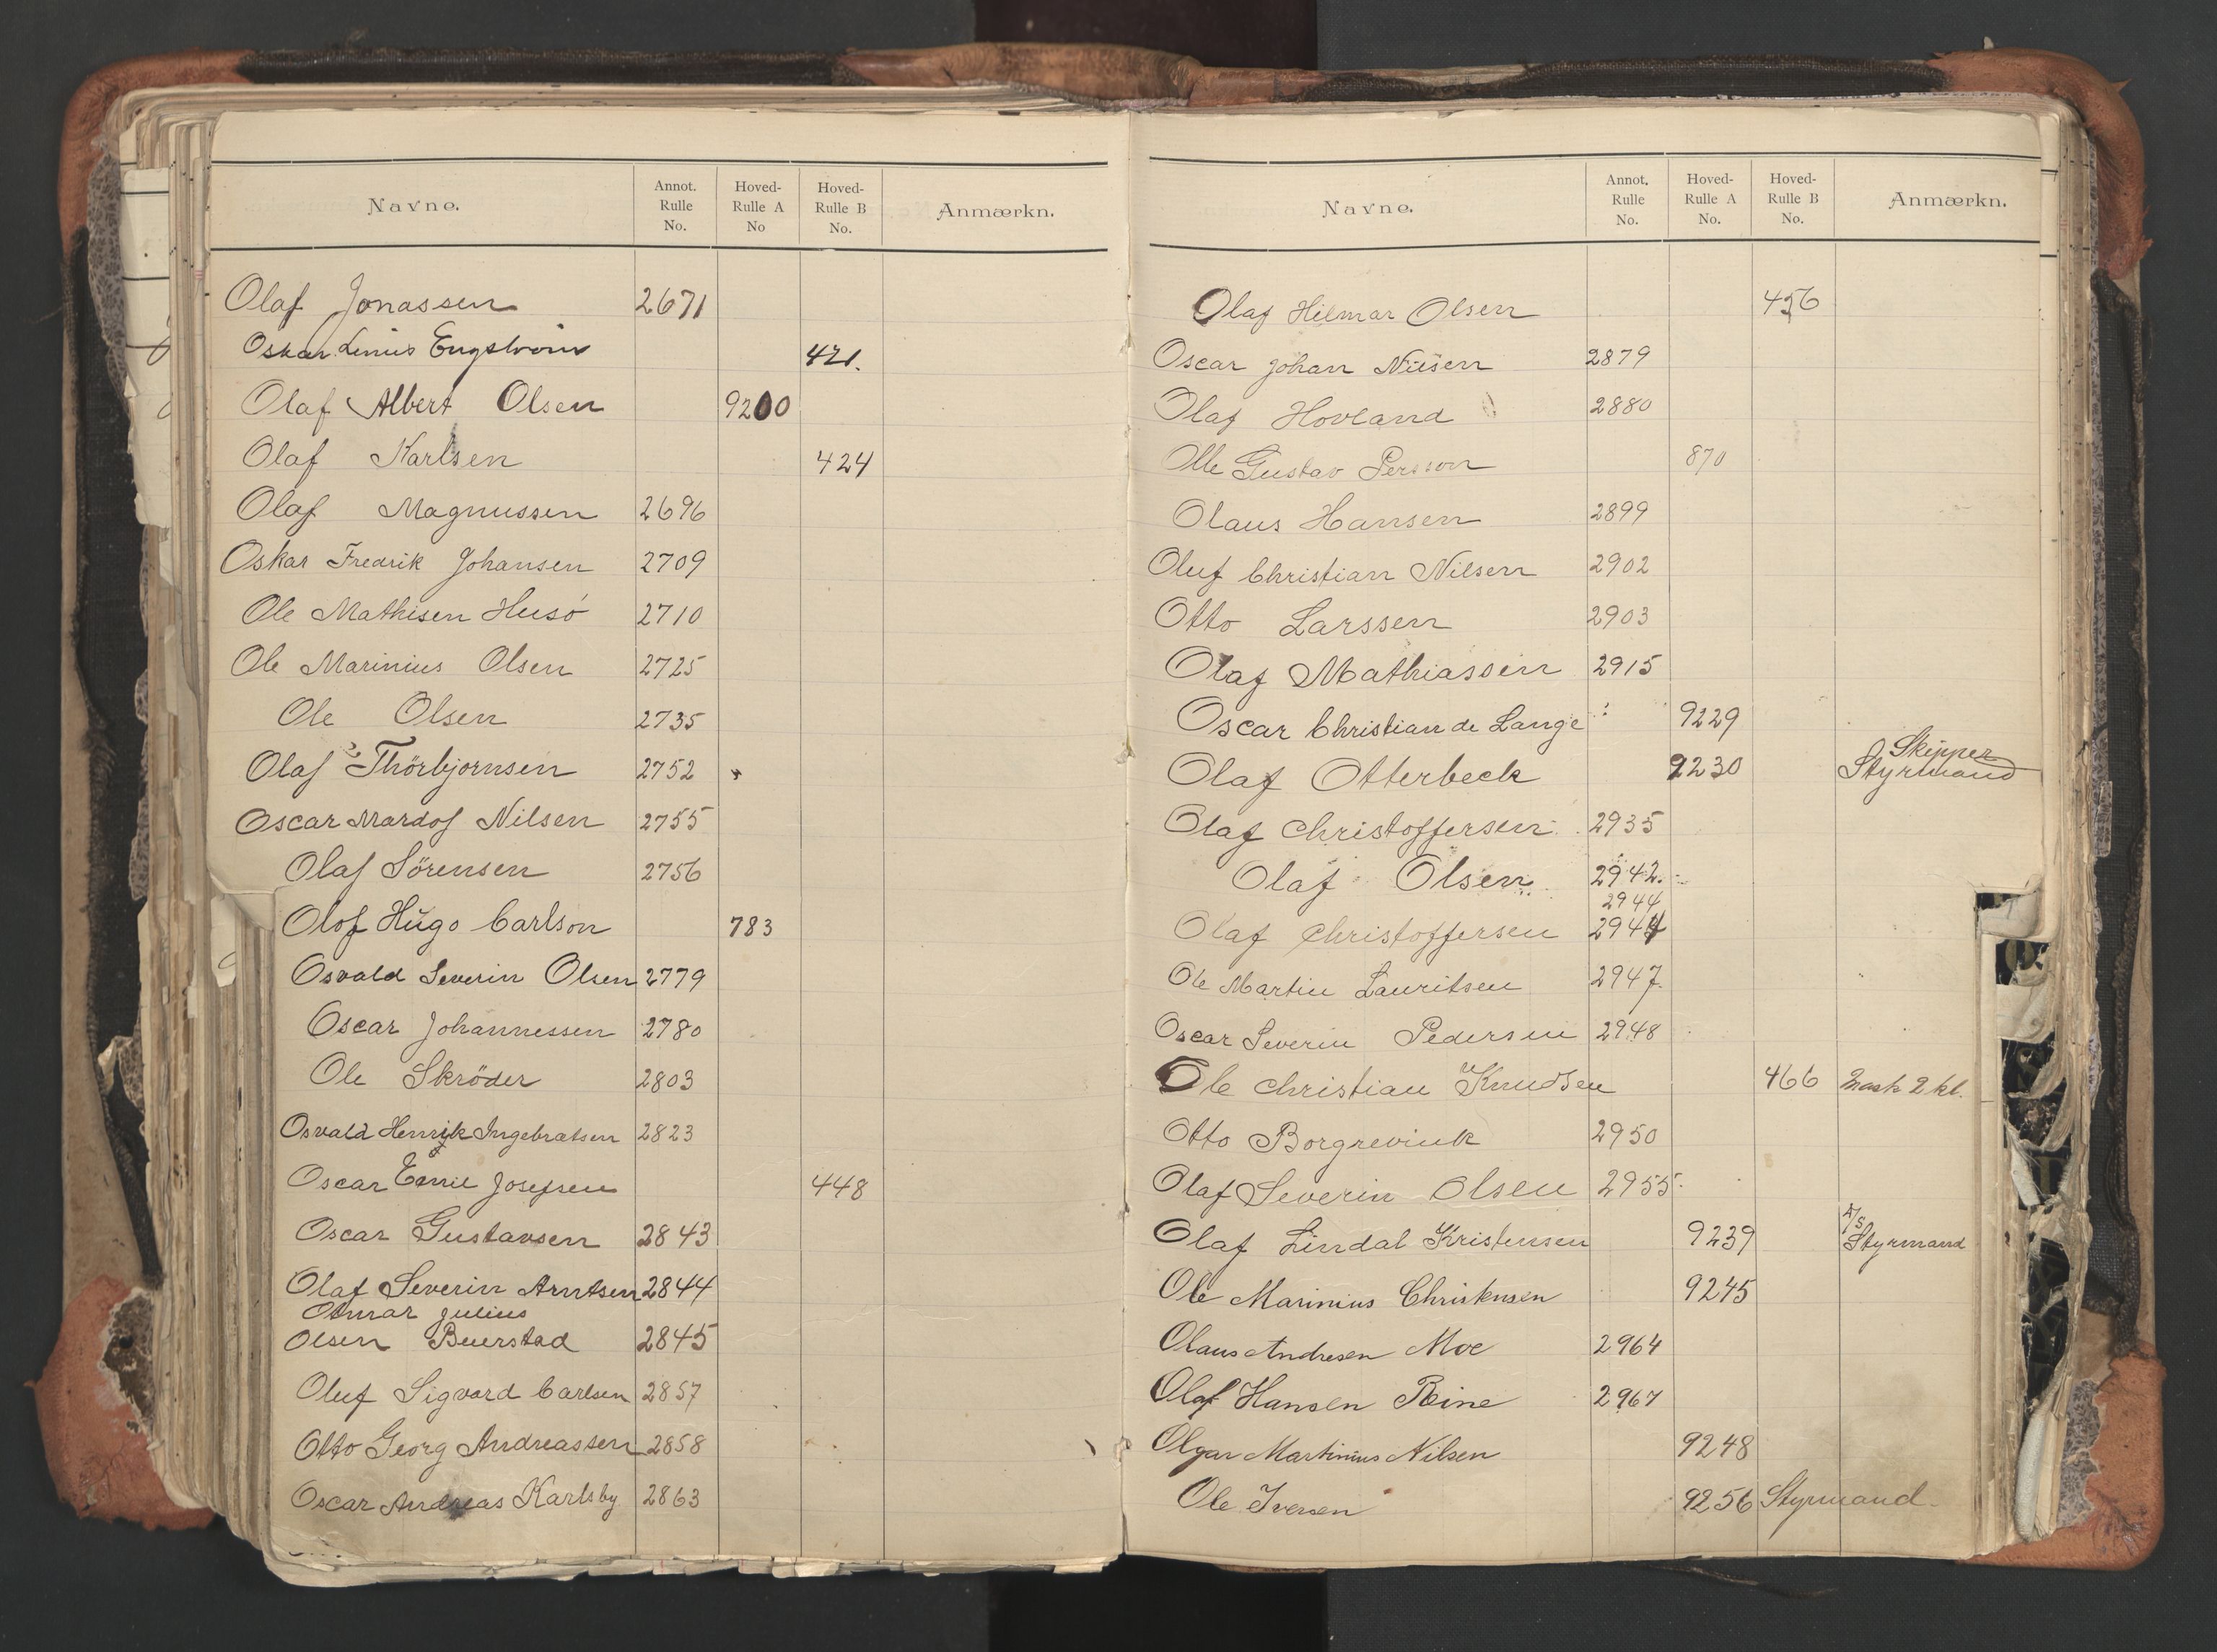 Navne. Annot. Rulle No. Hoved-Rulle A No Hoved-Rulle B No. Anmærkn.
Olaf Jonassen 2671
Oskar Linus Engstrøm 421.
Olaf Albert Olsen 9200
Olaf Karlsen 424
Olaf Magnussen 2696
Oskar Fredrik Johansen 2709
Ole Mathisen Husö 2710
Ole Marinius Olsen 2725
Ole Olsen 2735
Olaf Thörbjornsen 2752
Oscar Mardof Nilsen 2755
Olaf Sörensen 2756
Olof Hugo Carlson 783
Osvald Severin Olsen 2779
Oscar Johannessen 2780
Ole Skröder 2803
Osvald Henrik Ingebratsen 2823
Oscar Emil Josefsen 448
Oscar Gustavsen 2843
Olaf Severin Arntsen 2844
Otmar Julius
Olsen Buerstad 2845
Oluf Sigvard Carlsen 2857
Otto Georg Andreassen 2858
Oscar Andreas Karlsby 2863
Navne. Annot. Rulle No. Hoved-Rulle A No. Hoved-Rulle B No. Anmærkn.
Olaf Hilmar Olsen 456
Oscar Johan Nilsen 2879
Olaf Hovland 2880
Olle Gustav Persson 870
Olaus Hansen 2899
Oluf Christian Nilsen 2902
Otto Larssen 2903
Olaf Mathiassen 2915
Oscar Christian de Lange 9229
Skipper
Olaf Otterbeck 9230 Styrmand
Olaf Christoffersen 2935
Olaf Olsen 2942.
2944
Olaf Christoffersen 2944
Ole Martin Lauritsen 2947.
Oscar Severin Pedersen 2948
Ole Christian Knudsen 466 Mask 2 kl.
Otto Borgrevink 2950
Olaf Severin Olsen 2955
A/S
Olaf Lindal Kristensen 9239 Styrmand
Ole Marinius Christensen 9245
Olaus Andresen Moe 2964
Olaf Hansen Reine 2967
Olgar Martinius Nilsen 9248
Ole Iversen 9256 Styrmand.